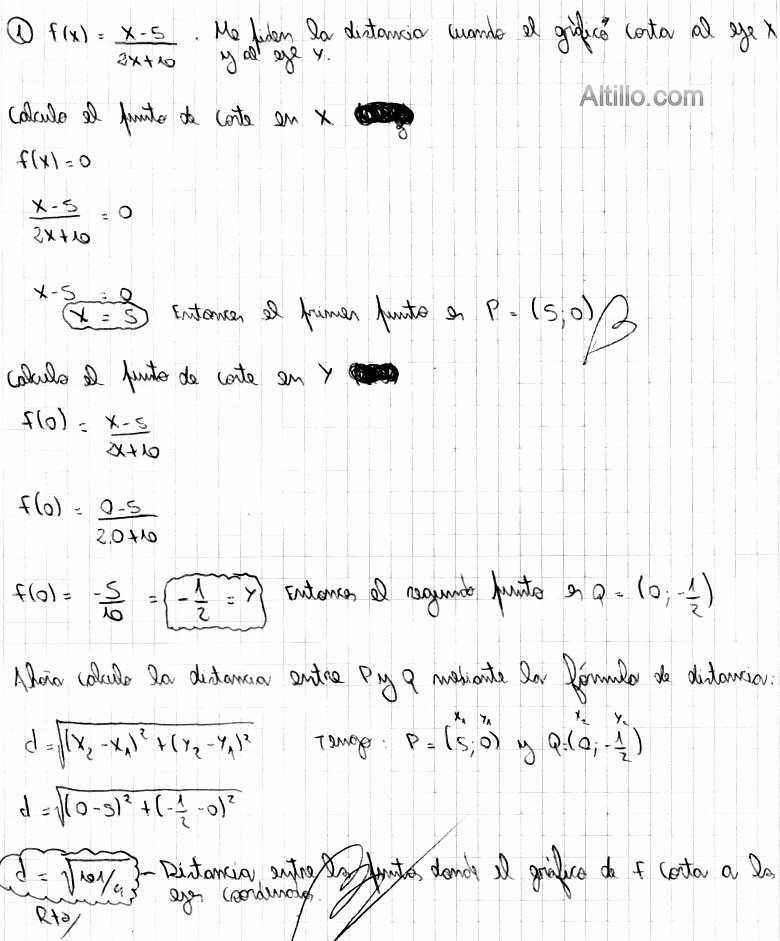 ① f(x) = x-5 / 2x+10 . Me piden la distancia cuando el gráfico corta al eje X
y al eje Y.
Altillo.com
Calculo el punto de corte en X
f(x) = 0
x-5 / 2x+10 = 0
x-5 = 0
x = 5 Entonces el primer punto es P = (5; 0)
Calculo el punto de corte en Y
f(0) = x-5 / 2x+10
f(0) = 0-5 / 2.0+10
f(0) = -5/10 = -1/2 = Y Entonces el segundo punto es Q = (0; -1/2)
Ahora calculo la distancia entre P y Q mediante la fórmula de distancia:
d = √(X₂ - X₁)² + (Y₂ - Y₁)² Tengo: P = (5; 0) y Q = (0; -1/2)
X₁ Y₁ X₂ Y₂
d = √(0-5)² + (-1/2 - 0)²
d = √101/4 - Distancia entre los puntos donde el gráfico de f corta a los
ejes coordenados.
Rta/